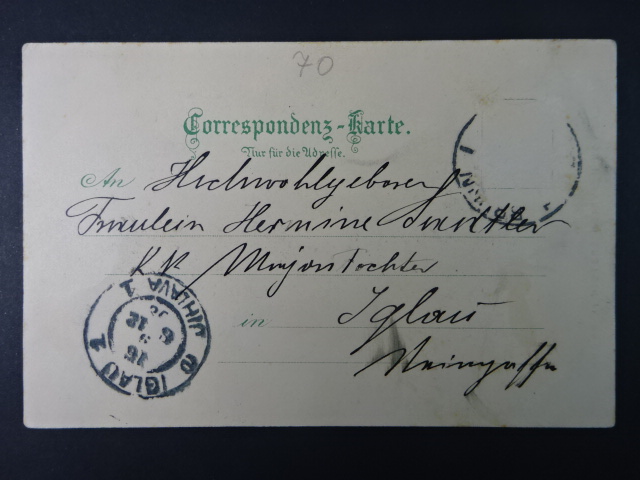 70
Correspondenz-Karte.
Nur für die Adresse.
An Hochwohlgeboren
Fräulein Hermine
KK Majorstochter
in Iglau
Steingasse
IGLAU 1 JIHLAVA 1